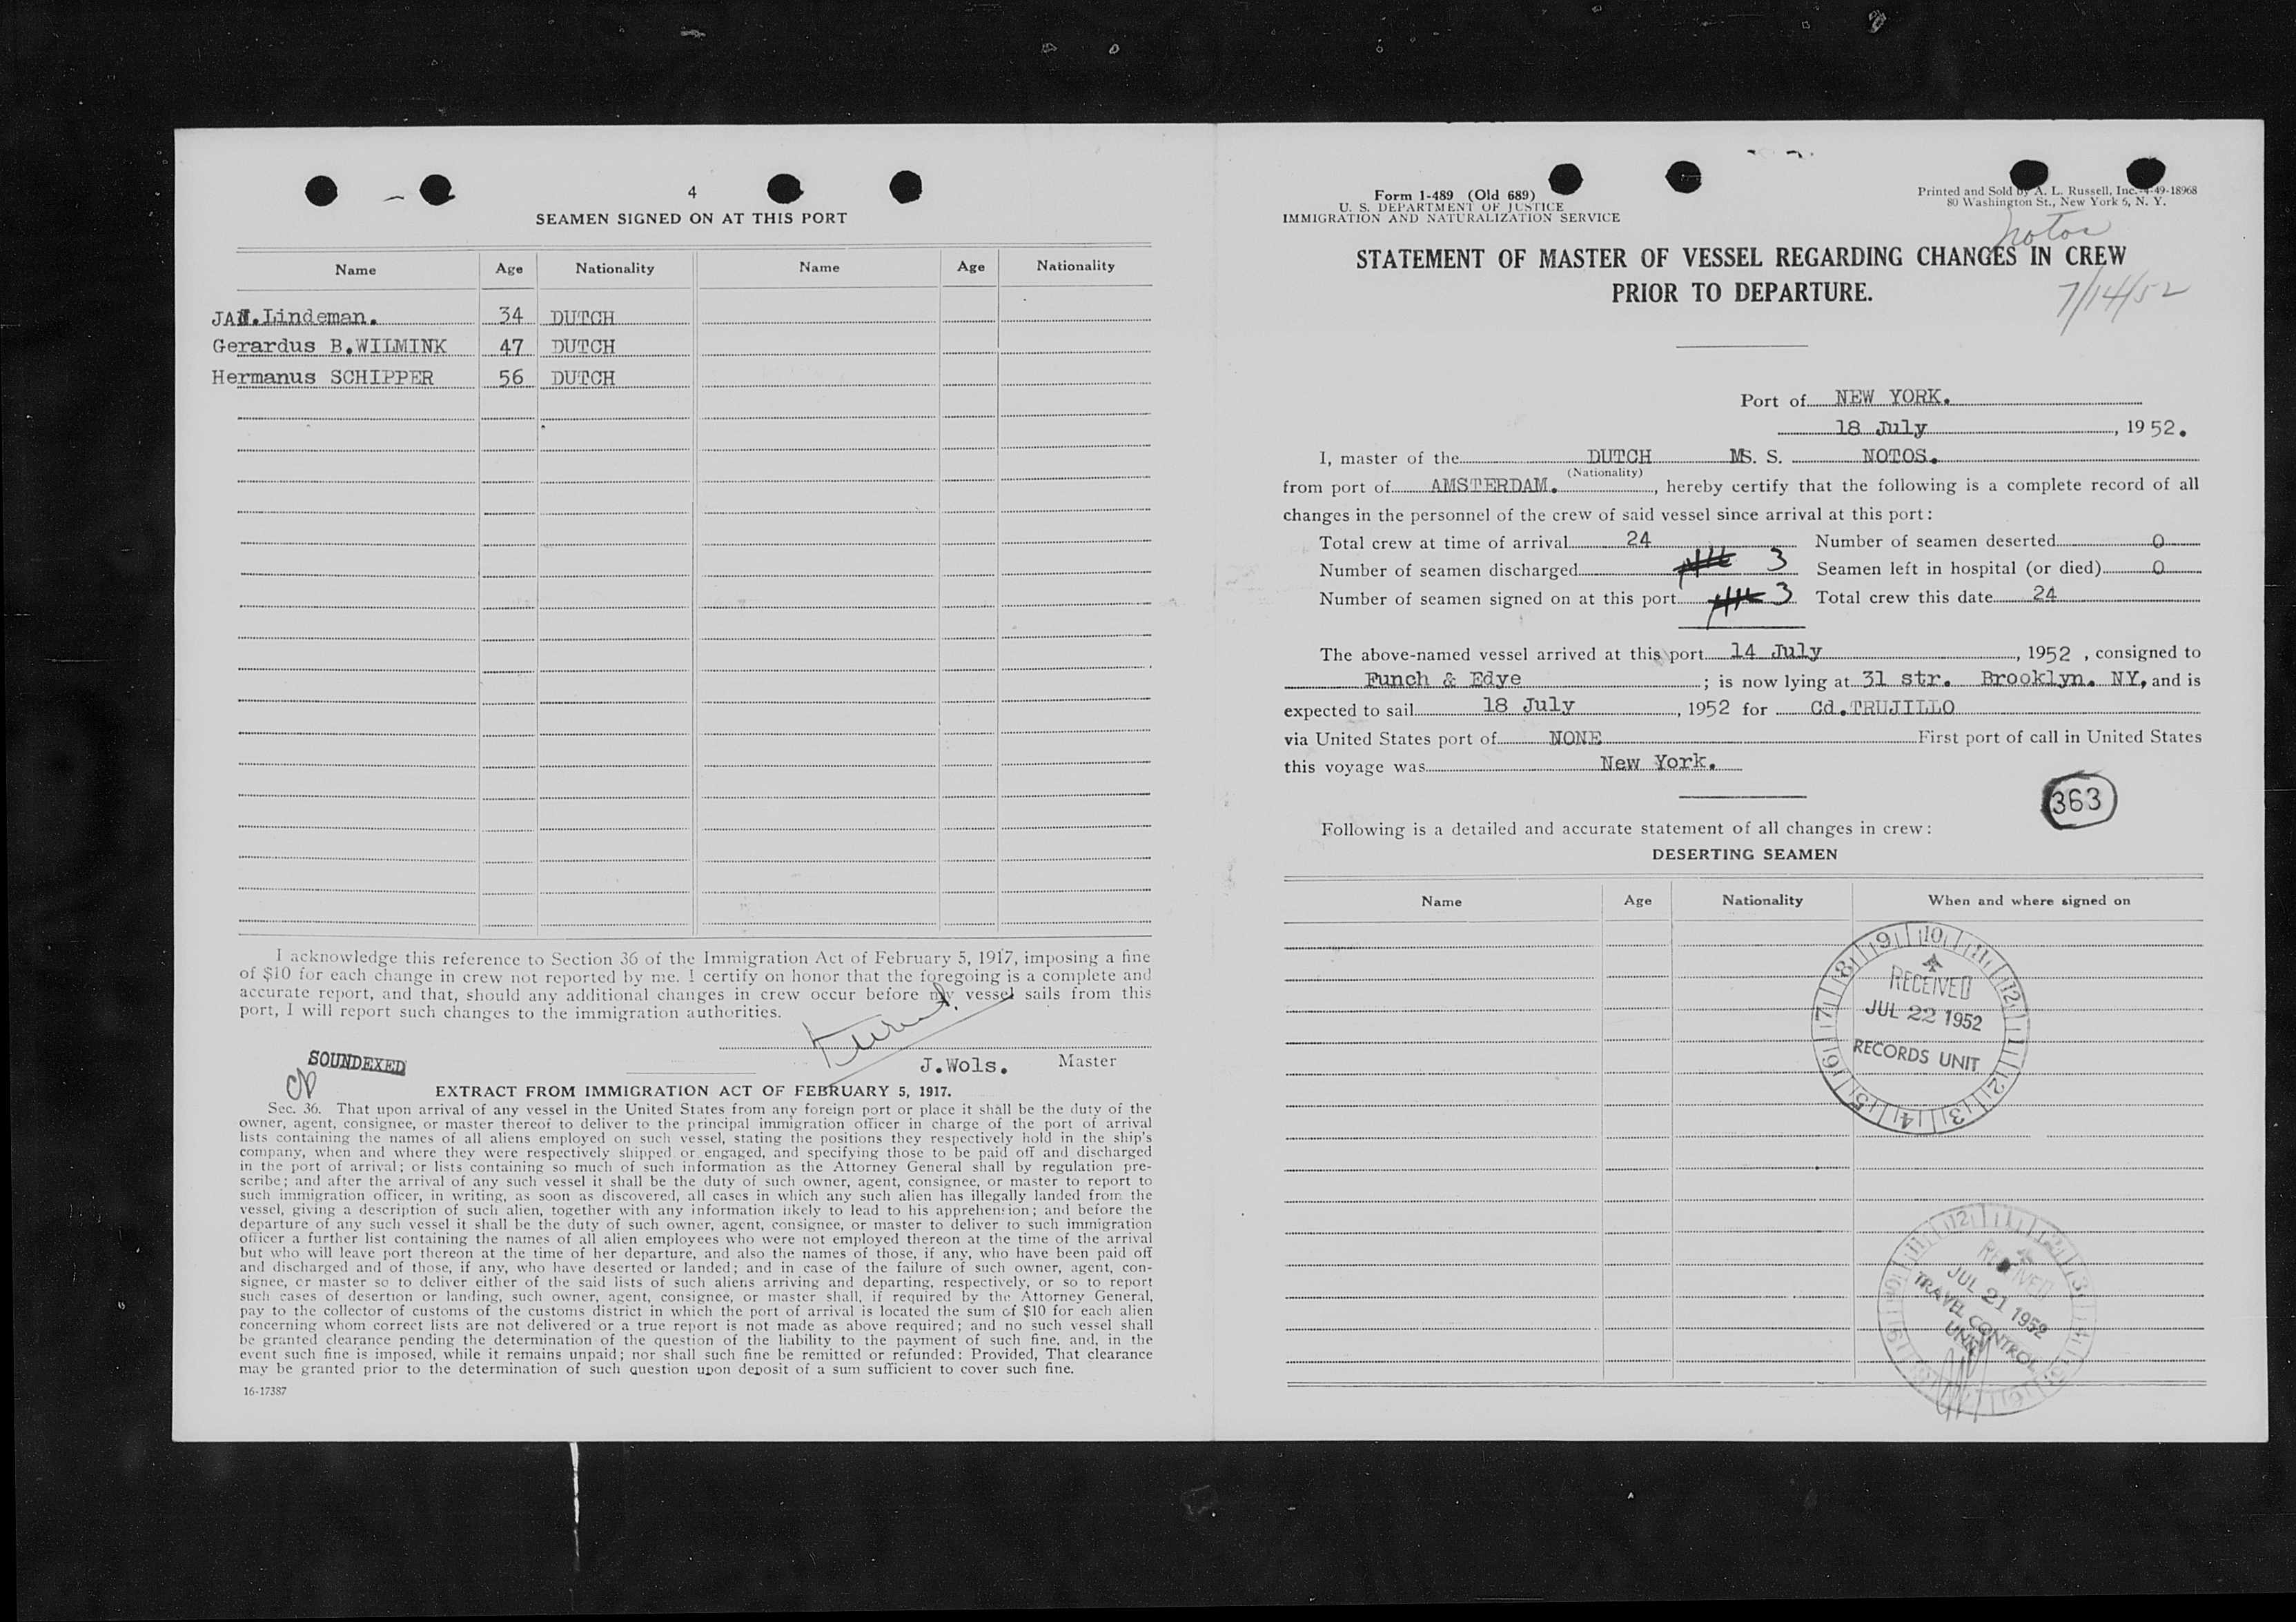 4
SEAMEN SIGNED ON AT THIS PORT
Name Age Nationality Name Age Nationality
JAN.Lindeman. 34 DUTCH
Gerardus B.WILMINK 47 DUTCH
Hermanus SCHIPPER 56 DUTCH
I acknowledge this reference to Section 36 of the Immigration Act of February 5, 1917, imposing a fine
of $10 for each change in crew not reported by me. I certify on honor that the foregoing is a complete and
accurate report, and that, should any additional changes in crew occur before my vessel sails from this
port, I will report such changes to the immigration authorities.
SOUNDEXED
J.Wols. Master
EXTRACT FROM IMMIGRATION ACT OF FEBRUARY 5, 1917.
Sec. 36. That upon arrival of any vessel in the United States from any foreign port or place it shall be the duty of the
owner, agent, consignee, or master thereof to deliver to the principal immigration officer in charge of the port of arrival
lists containing the names of all aliens employed on such vessel, stating the positions they respectively hold in the ship's
company, when and where they were respectively shipped or engaged, and specifying those to be paid off and discharged
in the port of arrival; or lists containing so much of such information as the Attorney General shall by regulation pre-
scribe; and after the arrival of any such vessel it shall be the duty of such owner, agent, consignee, or master to report to
such immigration officer, in writing, as soon as discovered, all cases in which any such alien has illegally landed from the
vessel, giving a description of such alien, together with any information likely to lead to his apprehension; and before the
departure of any such vessel it shall be the duty of such owner, agent, consignee, or master to deliver to such immigration
officer a further list containing the names of all alien employees who were not employed thereon at the time of the arrival
but who will leave port thereon at the time of her departure, and also the names of those, if any, who have been paid off
and discharged and of those, if any, who have deserted or landed; and in case of the failure of such owner, agent, con-
signee, or master so to deliver either of the said lists of such aliens arriving and departing, respectively, or so to report
such cases of desertion or landing, such owner, agent, consignee, or master shall, if required by the Attorney General,
pay to the collector of customs of the customs district in which the port of arrival is located the sum of $10 for each alien
concerning whom correct lists are not delivered or a true report is not made as above required; and no such vessel shall
be granted clearance pending the determination of the question of the liability to the payment of such fine, and, in the
event such fine is imposed, while it remains unpaid; nor shall such fine be remitted or refunded: Provided, That clearance
may be granted prior to the determination of such question upon deposit of a sum sufficient to cover such fine.
16-17387
Form 1-489 (Old 689)
U. S. DEPARTMENT OF JUSTICE
IMMIGRATION AND NATURALIZATION SERVICE
Printed and Sold by A. L. Russell, Inc.-4-49-18968
80 Washington St., New York 6, N. Y.
Notos
STATEMENT OF MASTER OF VESSEL REGARDING CHANGES IN CREW
PRIOR TO DEPARTURE.
7/14/52
Port of NEW YORK.
18 July, 1952.
I, master of the DUTCH MS. S. NOTOS.
(Nationality)
from port of AMSTERDAM., hereby certify that the following is a complete record of all
changes in the personnel of the crew of said vessel since arrival at this port:
Total crew at time of arrival 24 Number of seamen deserted 0
Number of seamen discharged 3 Seamen left in hospital (or died) 0
Number of seamen signed on at this port 3 Total crew this date 24
The above-named vessel arrived at this port 14 July, 1952, consigned to
Funch & Edye; is now lying at 31 str. Brooklyn. NY, and is
expected to sail 18 July, 1952 for Cd.TRUJILLO
via United States port of NONE First port of call in United States
this voyage was New York.
363
Following is a detailed and accurate statement of all changes in crew:
DESERTING SEAMEN
Name Age Nationality When and where signed on
9 10 11 12 1 2 3 4 5 6 7 8
RECEIVED
JUL 22 1952
RECORDS UNIT
RECEIVED
JUL 21 1952
TRAVEL CONTROL
UNIT